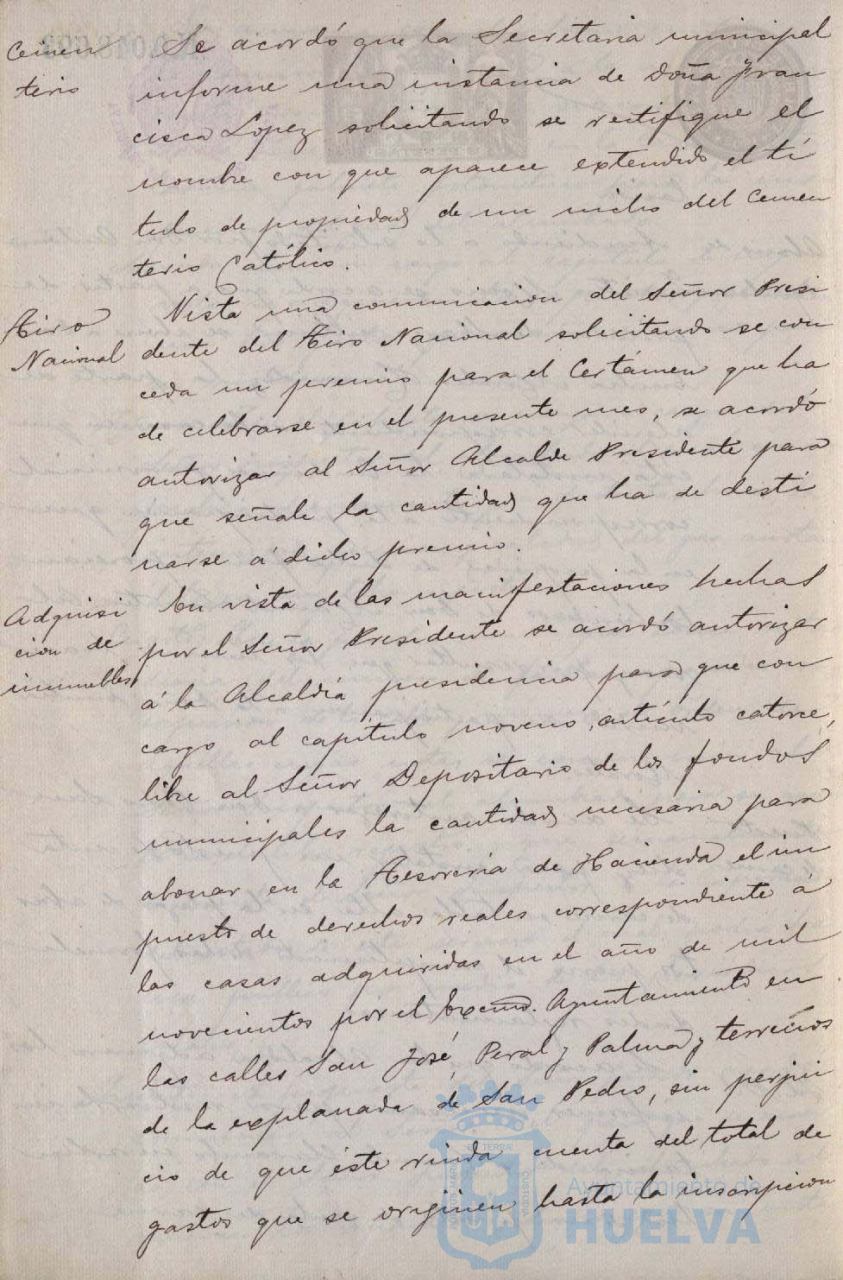 Cemen
terio
Se acordó que la Secretaria municipal
informe una instancia de Doña Fran
cisca Lopez solicitando se rectifique el
nombre con que aparece extendido el tí
tulo de propiedad de un nicho del Cemen
terio Católico.
Tiro
Nacional
Vista una comunicacion del Señor Presi
dente del Tiro Nacional solicitando se con
ceda un premio para el Certámen que ha
de celebrarse en el presente mes, se acordó
autorizar al Señor Alcalde Presidente para
que señale la cantidad que ha de desti
narse á dicho premio.
Adquisi
cion de
inmuebles
En vista de las manifestaciones hechas
por el Señor Presidente se acordó autorizar
á la Alcaldía presidencia para que con
cargo al capítulo noveno, artículo catorce,
libre al Señor Depositario de los fondos
municipales la cantidad necesaria para
abonar en la Tesorería de Hacienda el im
puesto de derechos reales correspondiente á
las casas adquiridas en el año de mil
novecientos por el Excmo. Ayuntamiento en
las calles San José, Peral y Palma y terrenos
de la explanada de San Pedro, sin perjui
cio de que éste rinda cuenta del total de
gastos que se originen hasta la inscripcion
Ayuntamiento de
HUELVA